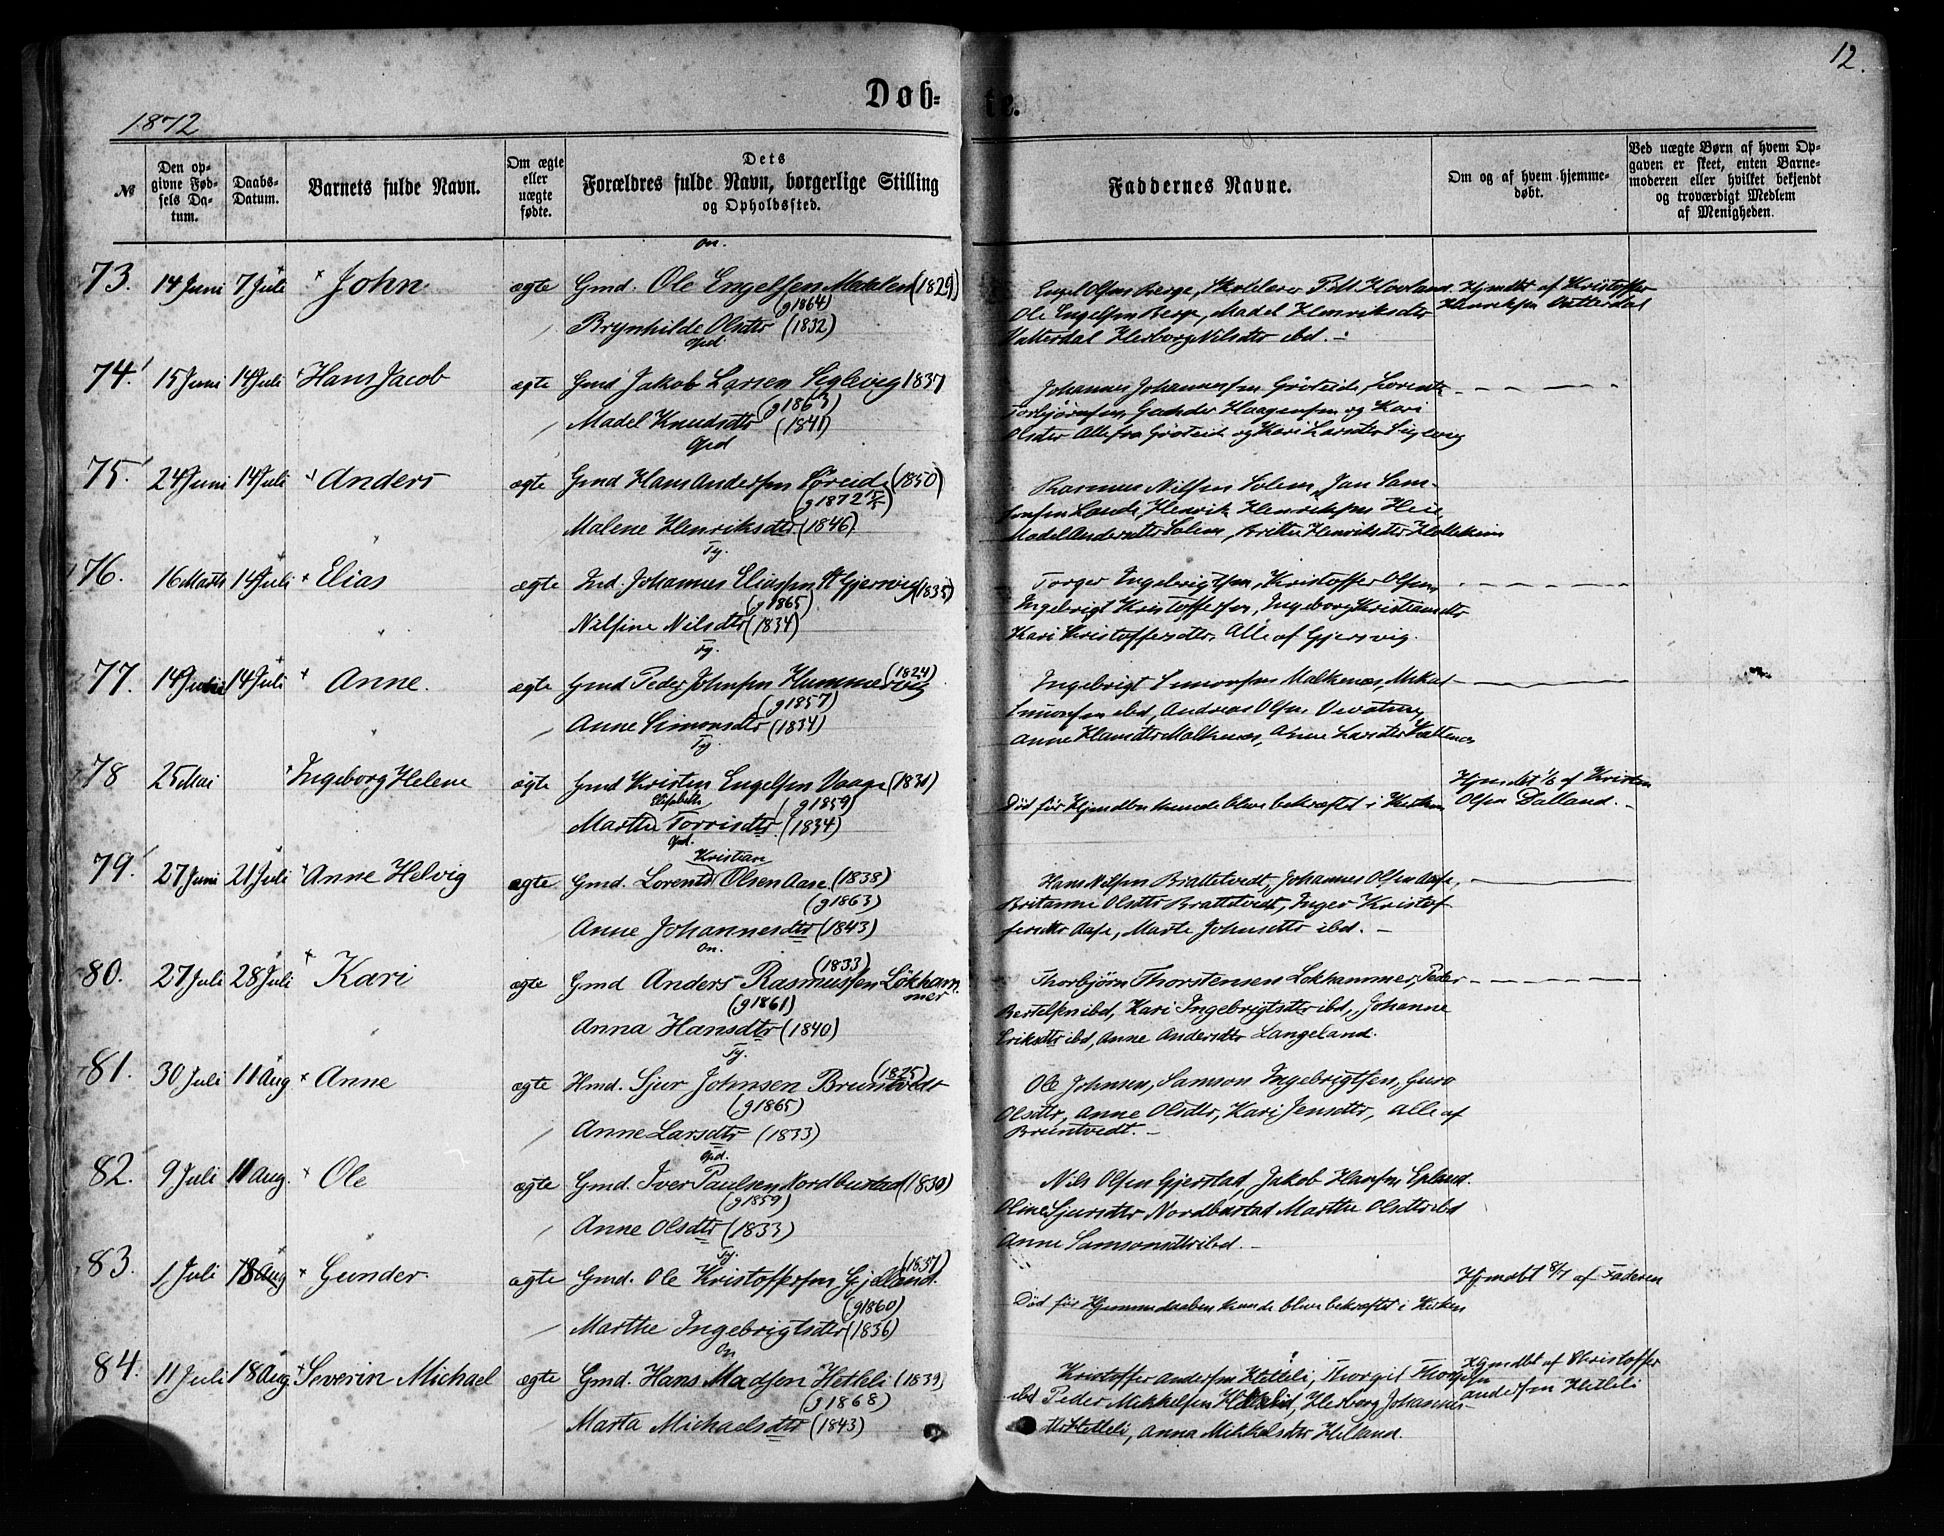 12.
Døb-
te.
1872
№
Den op-
givne Fød-
sels Da-
tum.
Daabs-
Datum.
Barnets fulde Navn.
Om ægte
eller
uægte
fødte.
Dets
Forældres fulde Navn, borgerlige Stilling
og Opholdssted.
Faddernes Navne.
Om og af hvem hjemme-
døbt.
Ved uægte Børn af hvem Op-
gaven er skeet, enten Barne-
moderen eller hvilket bekjendt
og troværdigt Medlem
af Menigheden.
On.
73. 14 Juni 7 Juli John ægte Gmd. Ole Engelsen (1829)
(g1864)
Brynhilde Olsdtr (1832)
Engel Olsen Berge, Skolelærer
Ole Engelsen Berge, Madel Henriksdtr
Vatterdal Herborg Nilsdtr ibd.
Hjmdbt af Kristoffer
Henriksen Vatterdal
Opd
74. 15 Juni 14 Juli Hans Jacob ægte Gmd Jakob Larsen Siglevig 1837
(g1863)
Madel Knudsdtr (1841)
Johannes Johannessen Grøteide
Torbjørnsen, Gunder Haagensen og Kari
Olsdtr Alle fra Grøteide og Kari Larsdtr Siglevig
Opd
75. 24 Juni 14 Juli Anders ægte Gmd Hans Andersen Søreide (1850)
(g1872
Malene Henriksdtr (1846)
Rasmus Nilsen Solem, Jan Sam-
sonsen Lande, Henrik Henriksen
Madel Andersdtr Solem, Brithe Henriksdtr
Ty.
76. 16 Marts 14 Juli Elias ægte Ind. Johannes Eliassen Gjersvig (1835)
(g1865)
Nilsine Nilsdtr (1834)
Torger Ingebrigtsen, Kristoffer Olsen,
Ingebrigt Kristoffersen, Ingeborg Kristiansdtr
Kari Kristoffersdtr. Alle af Gjersvig.
Ty.
77. 14 14 Juli Anne. ægte Gmd Peder Johnsen Hummervig (1824)
(g1857)
Anne Simonsdtr (1834)
Ingebrigt Simonsen Malkenæs, Mikal
Simonsen ibd, Andreas Olsen
Anne Malkenæs, Larsdtr
Ty.
78 25 Mai Ingeborg Helene ægte Gmd Kristen Engelsen Vaage (1831)
Elisabeth (g1859)
Marthe Torrisdtr. (1834)
Død før Hjmdbn kunde blive bekræftet i Kirken
Hjmdbt 1/6 af Kristen
Olsen Dalland.
Opd.
79. 27 Juni 21 Juli Anne Helvig ægte Gmd. Lorents Kristian Olsen Aase (1838)
(g1863)
Anne Johannesdtr (1843)
Hans Nilsen Brattetvedt, Johannes Olsen Aase,
Britanne Olsdtr Brattetvedt, Inger Kristof-
fersdtr Aase, Marte Johnsdtr ibd.
On.
80. 27 Juli 28 Juli Kari ægte Gmd Anders Rasmussen Løkham-
mer (1833)
(g1861)
Anna Hansdtr (1840)
Thorbjørn Thorstensen Lokhammer, Peder
Bertelsen ibd, Kari Ingebrigtsdtr ibd, Johanne
Eriksdtr ibd, Anne Andersdtr Langeland.
Ty.
81. 30 Juli 11 Aug Anne ægte Hmd. Sjur Johnsen Bruntvedt (1825)
(g1865)
Anne Larsdtr (1833)
Ole Johnsen, Samson Ingebrigtsen, Guro
Olsdtr, Anne Olsdtr, Kari Jensdtr, Alle af
Bruntvedt.
Opd.
82. 9 Juli 11 Aug. Ole ægte Gmd. Iver Paulsen Nordbustad (1830)
(g1859)
Anne Olsdtr (1833)
Nils Olsen Gjerstad, Jakob Hansen Epland.
Oline Sjursdtr Nordbustad Marthe Olsdtr ibd
Anne Samsonsdtr ibd.
Ty.
83. 1 Juli 18 Aug Gunder ægte Gmd. Ole Kristoffersen Gjelland. (1837)
(g1860)
Marthe Ingebrigtsdtr (1836)
Død før Hjemmedaaben kunde blive bekræftet i Kirken
Hjmdbt 8/7 af Faderen
On
84. 11 Juli 18 Aug Severin Michael ægte Gmd. Hans Madsen Hetleli (1839)
(g1868)
Marta Michaelsdtr (1843)
Kristoffer Andersen Hetleli, Thorgil
ibd Peder Mikkelsen Herborg Johannes-
dtr Hetleli, Anna Mikkelsdtr Helland.
Hjmdbt af Christoffer
Andersen Hetleli